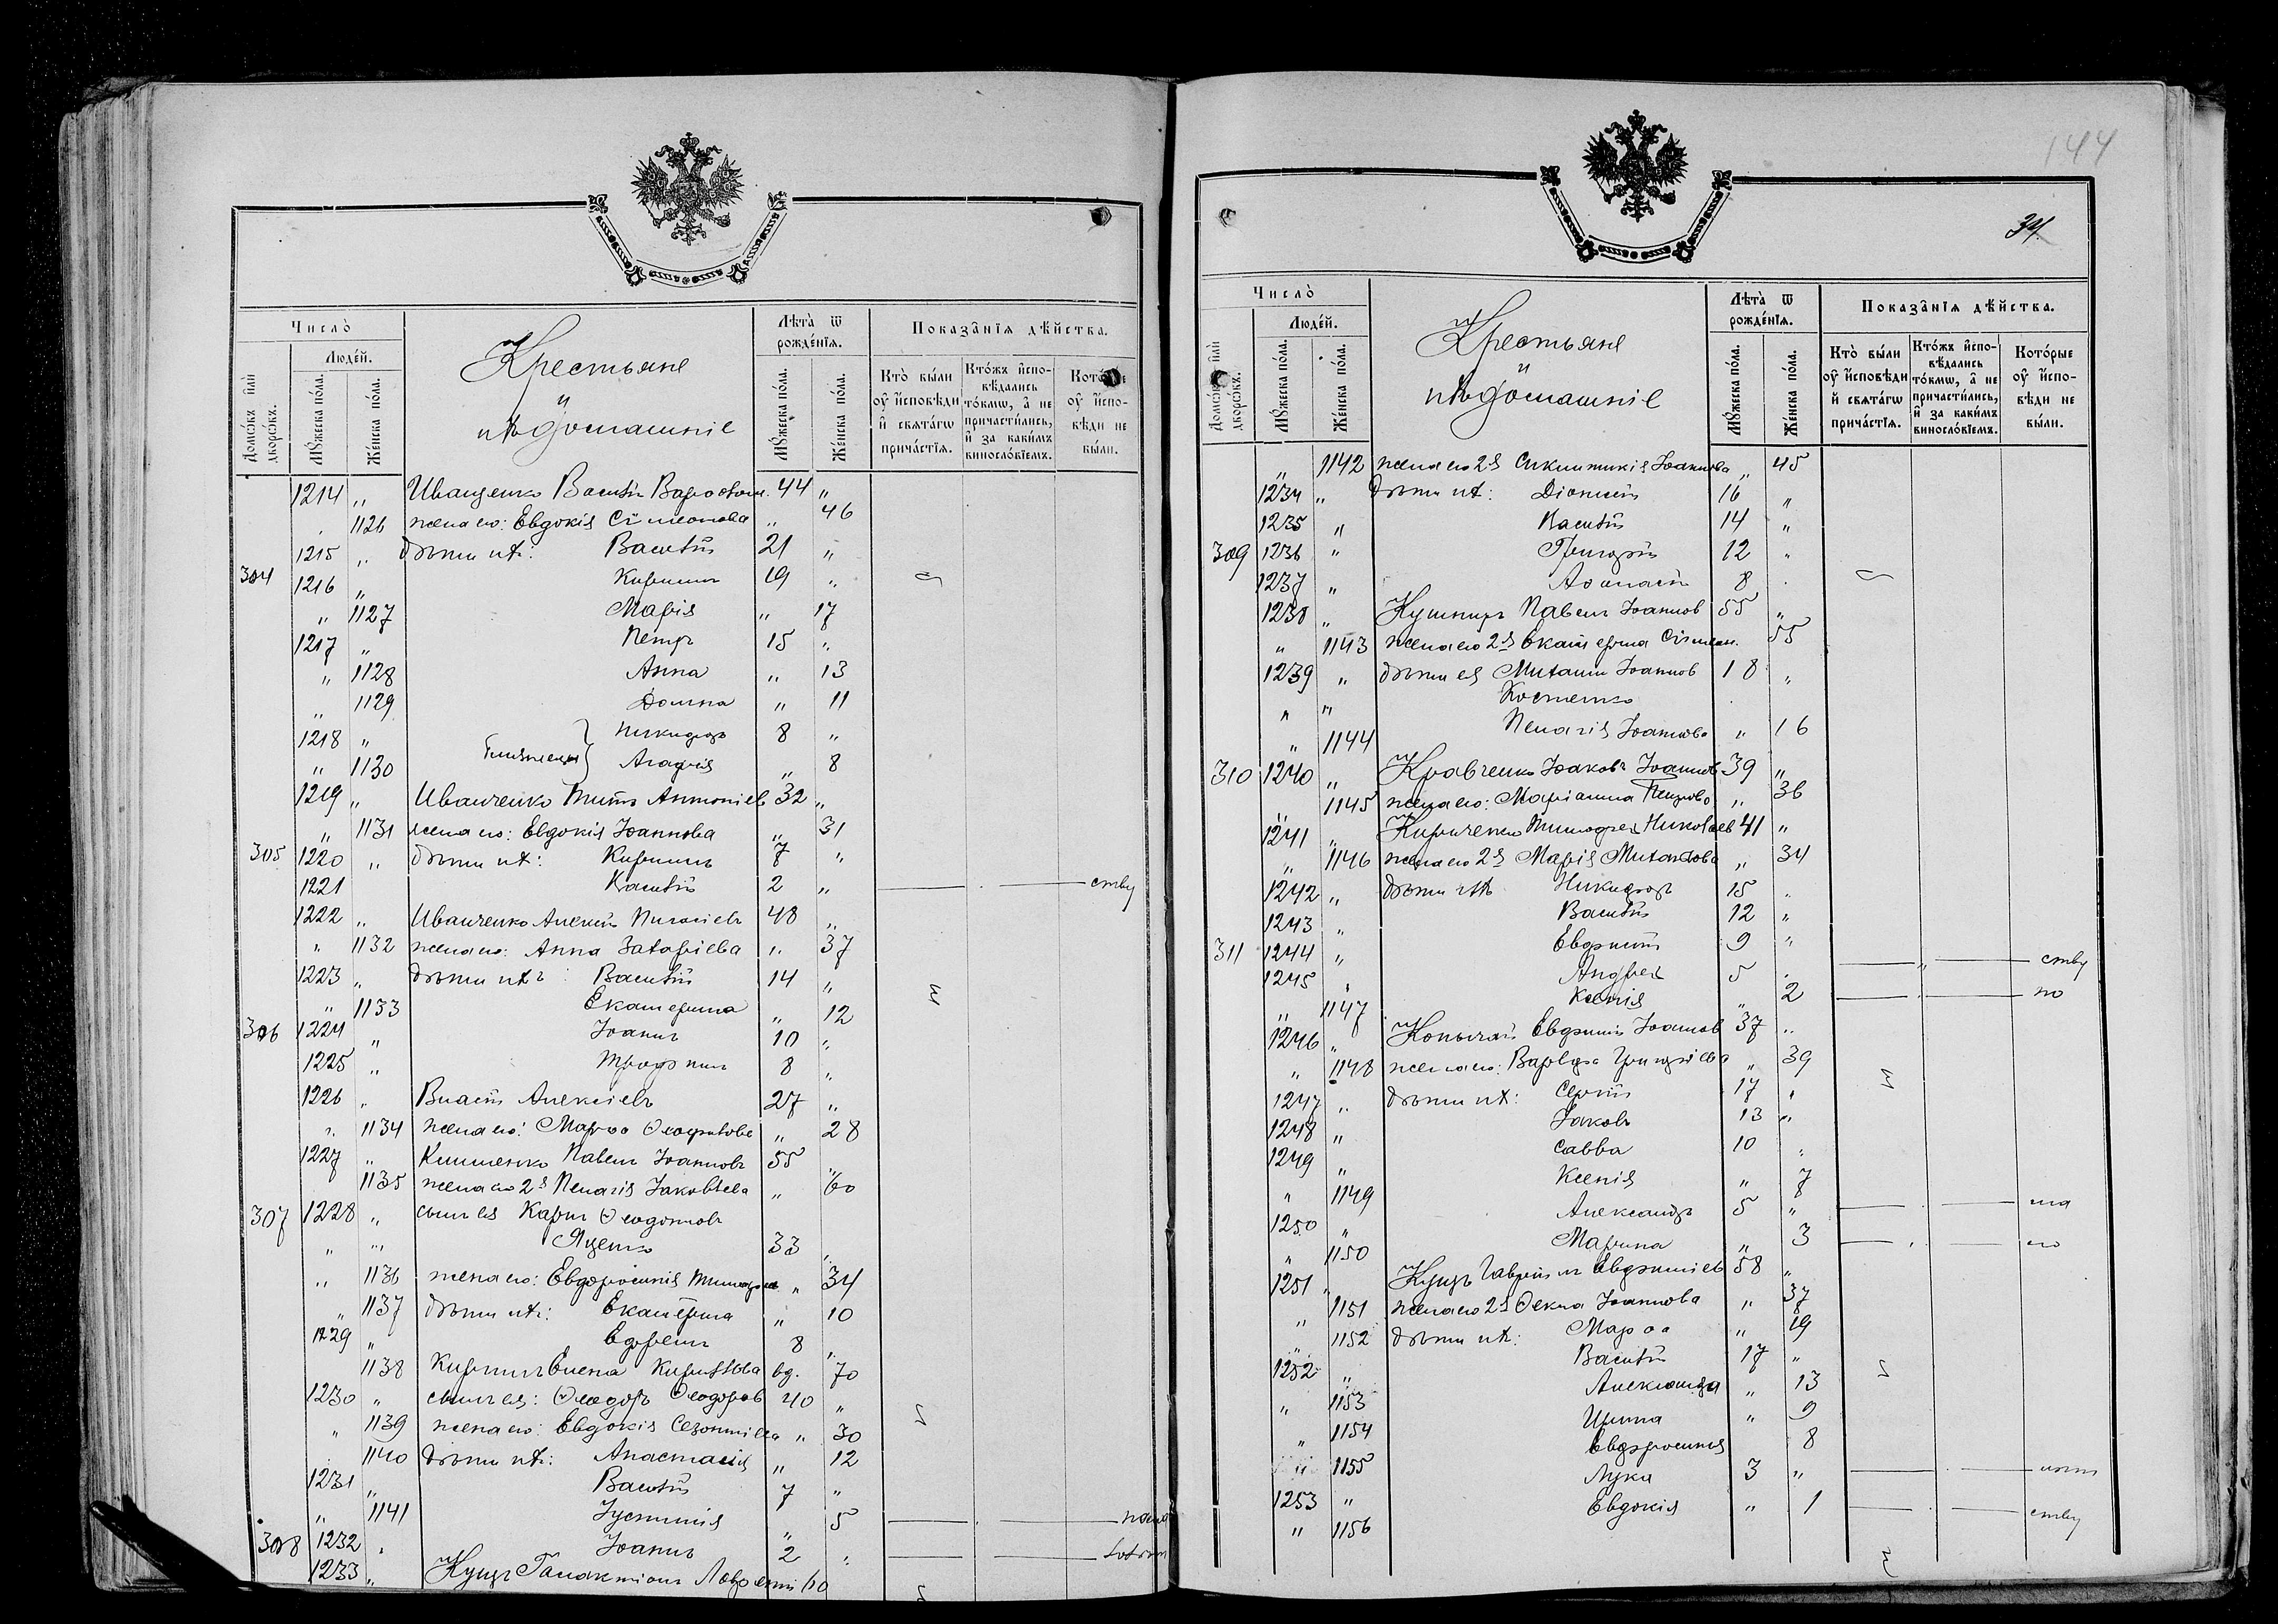 Число̀
Домо́въ и҆лѝ дворо́въ.
Люде́й.
Мꙋ́жеска по́ла.
Же́нска по́ла.
Крестьяне
и
ихъ домашніе
Лѣта̀ ѿ рожде́нїѧ.
Мꙋ́жеска по́ла.
Же́нска по́ла.
Показа̑нїѧ дѣ́йства.
Кто̀ бы́ли оу҆ и҆́сповѣди и҆ свѧта́гѡ прича́стїѧ.
Кто́жъ и҆спо-вѣ́дались то́кмѡ, а҆ не причасти́лись, и҆ за каки́мъ винослові́емъ.
Кото́рые оу҆ и҆спо-вѣди не бы́ли.
1214 „ Иващенко Василій 44 „
„ 1126 жена его: Евдокія Сѵмеонова „ 46
1215 „ дѣти ихъ: Василій 21 „
304 1216 „ Кириллъ 19 „
„ 1127 Марія „ 17
1217 „ Петръ 15 „
„ 1128 Анна „ 13
„ 1129 Домна „ 11
1218 „ Близнецы Никифоръ 8 „
„ 1130 Агафія „ 8
1219 „ Иванченко Титъ Антоніевъ 32 „
„ 1131 жена его: Евдокія Іоаннова „ 31
305 1220 „ дѣти ихъ: Кириллъ 7 „
1221 Василій 2 „ ству
1222 „ Иванченко Алексій 48 „
„ 1132 жена его: Анна Захаріева „ 37
1223 „ дѣти ихъ: Василій 14 „
„ 1133 Екатерина „ 12
306 1224 „ Іоаннъ 10 „
1225 „ Трофимъ 8 „
1226 „ Власій Алексіевъ 27 „
„ 1134 жена его: Марѳа „ 28
1227 „ Клименко Павелъ Іоанновъ 55 „
1135 жена его 2я Пелагія Іаковлева „ 60
307 1228 „ сынъ ея Карпъ Ѳеодотовъ
„ „ Яценко 33 „
„ 1136 жена его: Евфросинія „ 34
„ 1137 дѣти ихъ: Екатерина „ 10
1229 „ Ефремъ 8 „
1138 Елена Кириллова вд. 70
1230 „ сынъ ея: Ѳеодоръ Ѳеодоровъ 40 „
„ 1139 жена его: Евдокія „ 30
1140 дѣти ихъ: Анастасія „ 12
1231 „ Василій 7 „
„ 1141 Іустинія „ 5
308 1232 „ Іоаннъ 2 „
1233 „ Куцъ Галактіонъ 60
144
34.
Число̀
Домо́въ и҆лѝ дворо́въ.
Люде́й.
Мꙋ́жеска по́ла.
Же́нска по́ла.
Крестьяне
и
ихъ домашніе
Лѣта̀ ѿ рожде́нїѧ.
Мꙋ́жеска по́ла.
Же́нска по́ла.
Показа̑нїѧ дѣ́йства.
Кто̀ бы́ли оу҆ и҆́сповѣди и҆ свѧта́гѡ прича́стїѧ.
Кто́жъ и҆спо-вѣ́дались то́кмѡ, а҆ не причасти́лись, и҆ за каки́мъ винослові́емъ.
Кото́рые оу҆ и҆спо-вѣди не бы́ли.
„ 1142 жена его 2я Синклитикія Іоаннова „ 45
1234 „ дѣти ихъ: Діонисій 16 „
1235 „ Василій 14 „
309 1236 „ Григорій 12 „
1237 „ Аѳанасій 8
1238 „ Кушниръ Павелъ Іоанновъ 55 „
„ 1143 жена его 2я Екатерина Сѵмеон. 55
1239 „ дѣти ея Михаилъ Іоанновъ 18 „
„ „ Костенко
„ 1144 Пелагія Іоаннова „ 16
310 1240 „ Кравченко Іаковъ Іоанновъ 39 „
„ 1145 жена его: Маріанна Петрова „ 36
1241 „ Кириченко Тимофей Николаевъ 41 „
„ 1146 жена его 2я Марія Михайлова „ 34
1242 „ дѣти ихъ Никифоръ 15
1243 „ Василій 12 „
311 1244 „ Евфимій 9 „
1245 Андрей 5 „ ству
„ 1147 Ксенія „ 2 по
1246 „ Копычай Евфимій Іоанновъ 37 „
„ 1148 жена его: Варвара Григоріева „ 39
1247 „ дѣти ихъ: Сергій 17 „
1248 „ Іаковъ 13 „
1249 „ Савва 10 „
„ 1149 Ксенія „ 7
1250 „ Александръ 5 „
„ 1150 Марина „ 3
1251 „ Куцъ Гавріилъ Евфиміевъ 58 „
„ 1151 жена его 2я Ѳекла Іоаннова „ 37
„ 1152 дѣти ихъ: Марѳа „ 19
1252 „ Василій 17 „
„ 1153 Александра „ 13
„ 1154 Ирина „ 9
„ 1155 Евфросинія 8
1253 „ Лука 3 „
„ 1156 Евдокія „ 1 ству